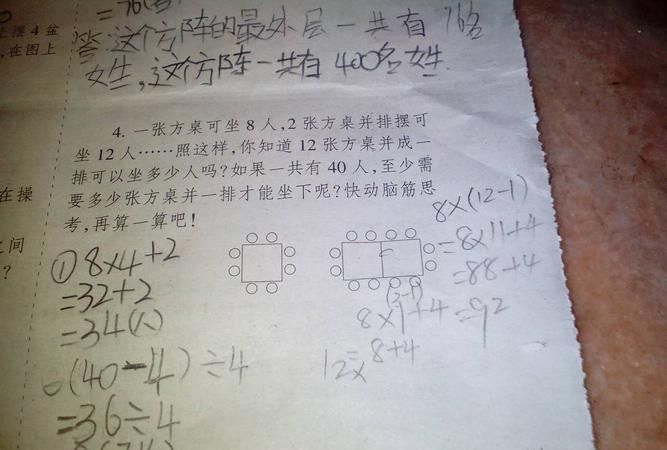 =76(名)
上摆4盆
,在图上
答:这个方阵的最外层一共有76名
女生,这个方阵一共有400名女生.
4. 一张方桌可坐8人,2张方桌并排摆可
坐12人……照这样,你知道12张方桌并成一
排可以坐多少人吗?如果一共有40人,至少需
要多少张方桌并一排才能坐下呢?快动脑筋思
考,再算一算吧!
在操
之间
?
①8×4+2
=32+2
=34(人)
(40-4)÷4
=36÷4
8×(12-1)
=8×11+4
=88+4
=92
(2-1)
8×1+4
12=8+4